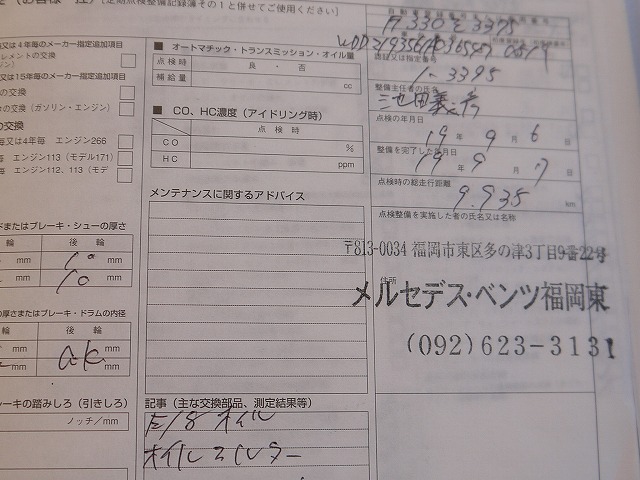 [定期点検整備記録簿その1と併せてご使用ください]
又は4年毎のメーカー指定追加項目
レメントの交換
又は15年毎のメーカー指定追加項目
の交換
の交換 (ガソリン・エンジン)
の交換
毎又は4年毎 エンジン266
毎 エンジン113 (モデル171)
毎 エンジン112、113 (モデ
またはブレーキ・シューの厚さ
輪 後 輪
mm 10 mm
mm 10 mm
の厚さまたはブレーキ・ドラムの内径
輪 後 輪
mm ok mm
mm mm
レーキの踏みしろ (引きしろ)
ノッチ/mm
■ オートマチック・トランスミッション・オイル量
点検時 良・否
補給量 cc
■ CO、HC濃度 (アイドリング時)
点検時
CO %
HC ppm
メンテナンスに関するアドバイス
記事 (主な交換部品、測定結果等)
E/g オイル
オイルエレメンター
1-3395
整備主任者の氏名
池田
点検の年月日
19 年 9 月 6 日
整備を完了した年月日
19 年 9 月 7 日
点検時の総走行距離
9.935 km
点検整備を実施した者の氏名又は名称
〒813-0034 福岡市東区多の津3丁目9番22号
住所
メルセデス・ベンツ福岡東
(092)623-3131